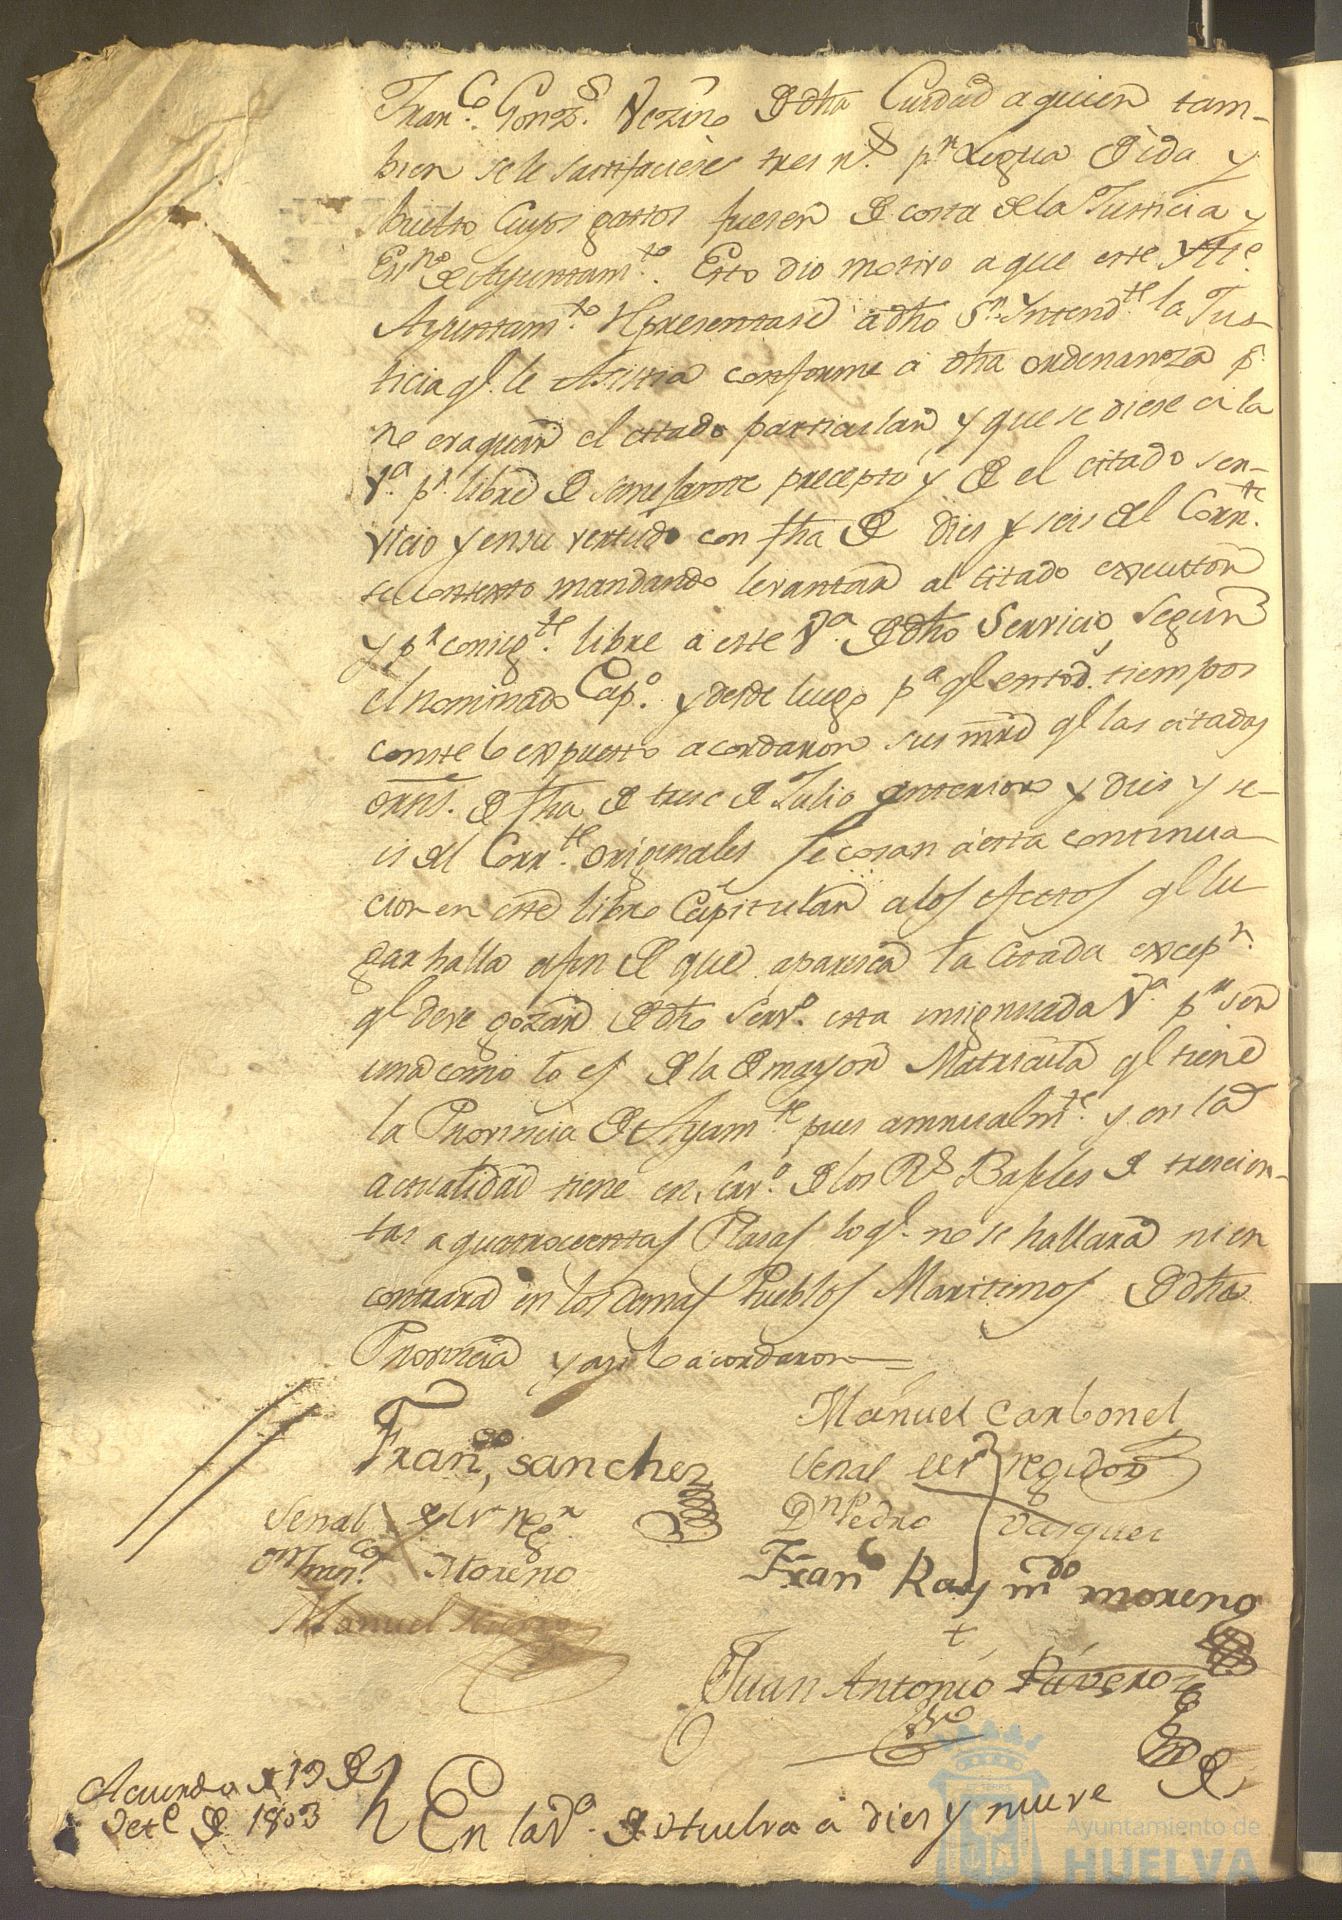 Fran.co Gonz.s Vezino de dha Ciudad a quien tam-
bien se le satisfaciese tres r.s p.r Legua de ida y
buelta Cuyos gastos fuesen de costa de la Justicia y
Esn.no de Ayuntam.to. Esto dio motivo a que este Ytte.
Ayuntam.to Representase a dho S.r Yntend.te la Jus-
ticia q.e le Asistia conforme a dha ordenanza p.
el citado particular y que se diese a la
V.a p.r libre de semejante precepto y de el citado ser-
vicio y en su vertud con fha de dies y seis del Corr.te
se contexto mandando levantar al citado executor
y p.r consig.te libre a este V.a de dho Servicio, Segun
el nominado Cap.o y desde luego p.a q.e en tod.s tiempos
conste lo expuesto acordaron sus mrd q.e las citadas
ornes. de fha de trese de Julio anterior y dies y se-
is del Corr.te originales se cosan a esta continua-
cion en este libro Capitular a los efectos q.e lu
gar halla a fin de que aparesca la citada excep.n
q.e deve gozar de dho Serv.o esta insignuada V.a p.r ser
una como lo es de la de mayor Matricula q.e tiene
la Provincia de Ayam.te pues annualm.te y en la
actualidad tiene en Serv.o de los R.s Bajeles de trescien-
tas a quatrocientas Plasas lo q.e no se hallara ni en
contrara en los demas Pueblos Maritimos de dha
Provincia y asi lo acordaron
Manuel Carbonel
Fran.co sanchez
Señal del S.r regidor
Dn Pedro Vasques
Señal del S.r Reg.r
Dn Fran.co Moreno
Fran.co Raym.do moreno
Manuel
Juan Antonio Rivero
Acuerdo de 19 de
Set.e de 1803
En la V.a de Huelva a dies y nueve de
Ayuntamiento de
HUELVA